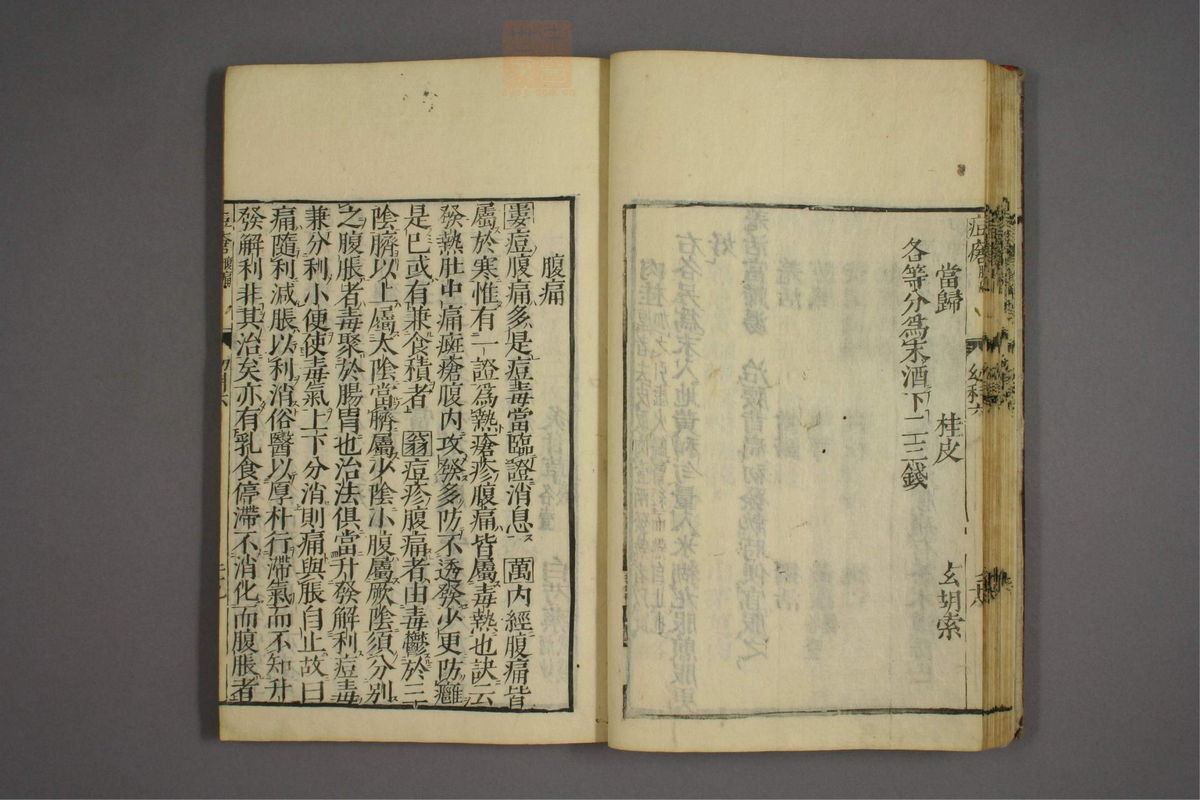 當歸　桂皮　玄胡索
各等分爲末酒下二三錢
腹痛
婁痘腹痛多是痘毒當臨證消息　萬内經腹痛皆
屬於寒惟有一證爲熱瘡疹腹痛皆屬毒熱也訣云
發熱肚中痛斑瘡腹内攻發多防不透發少更防癰
是已或有兼食積者　翁痘疹腹痛者由毒鬱於三
陰臍以上屬太陰當臍屬少陰小腹屬厥陰須分别
之腹脹者毒聚於腸胃也治法俱當升發解利痘毒
兼分利小便使毒氣上下分消則痛與脹自止故曰
痛隨利減脹以利消俗醫以厚朴行滯氣而不知升
發解利非其治矣亦有乳食停滯不消化而腹脹者